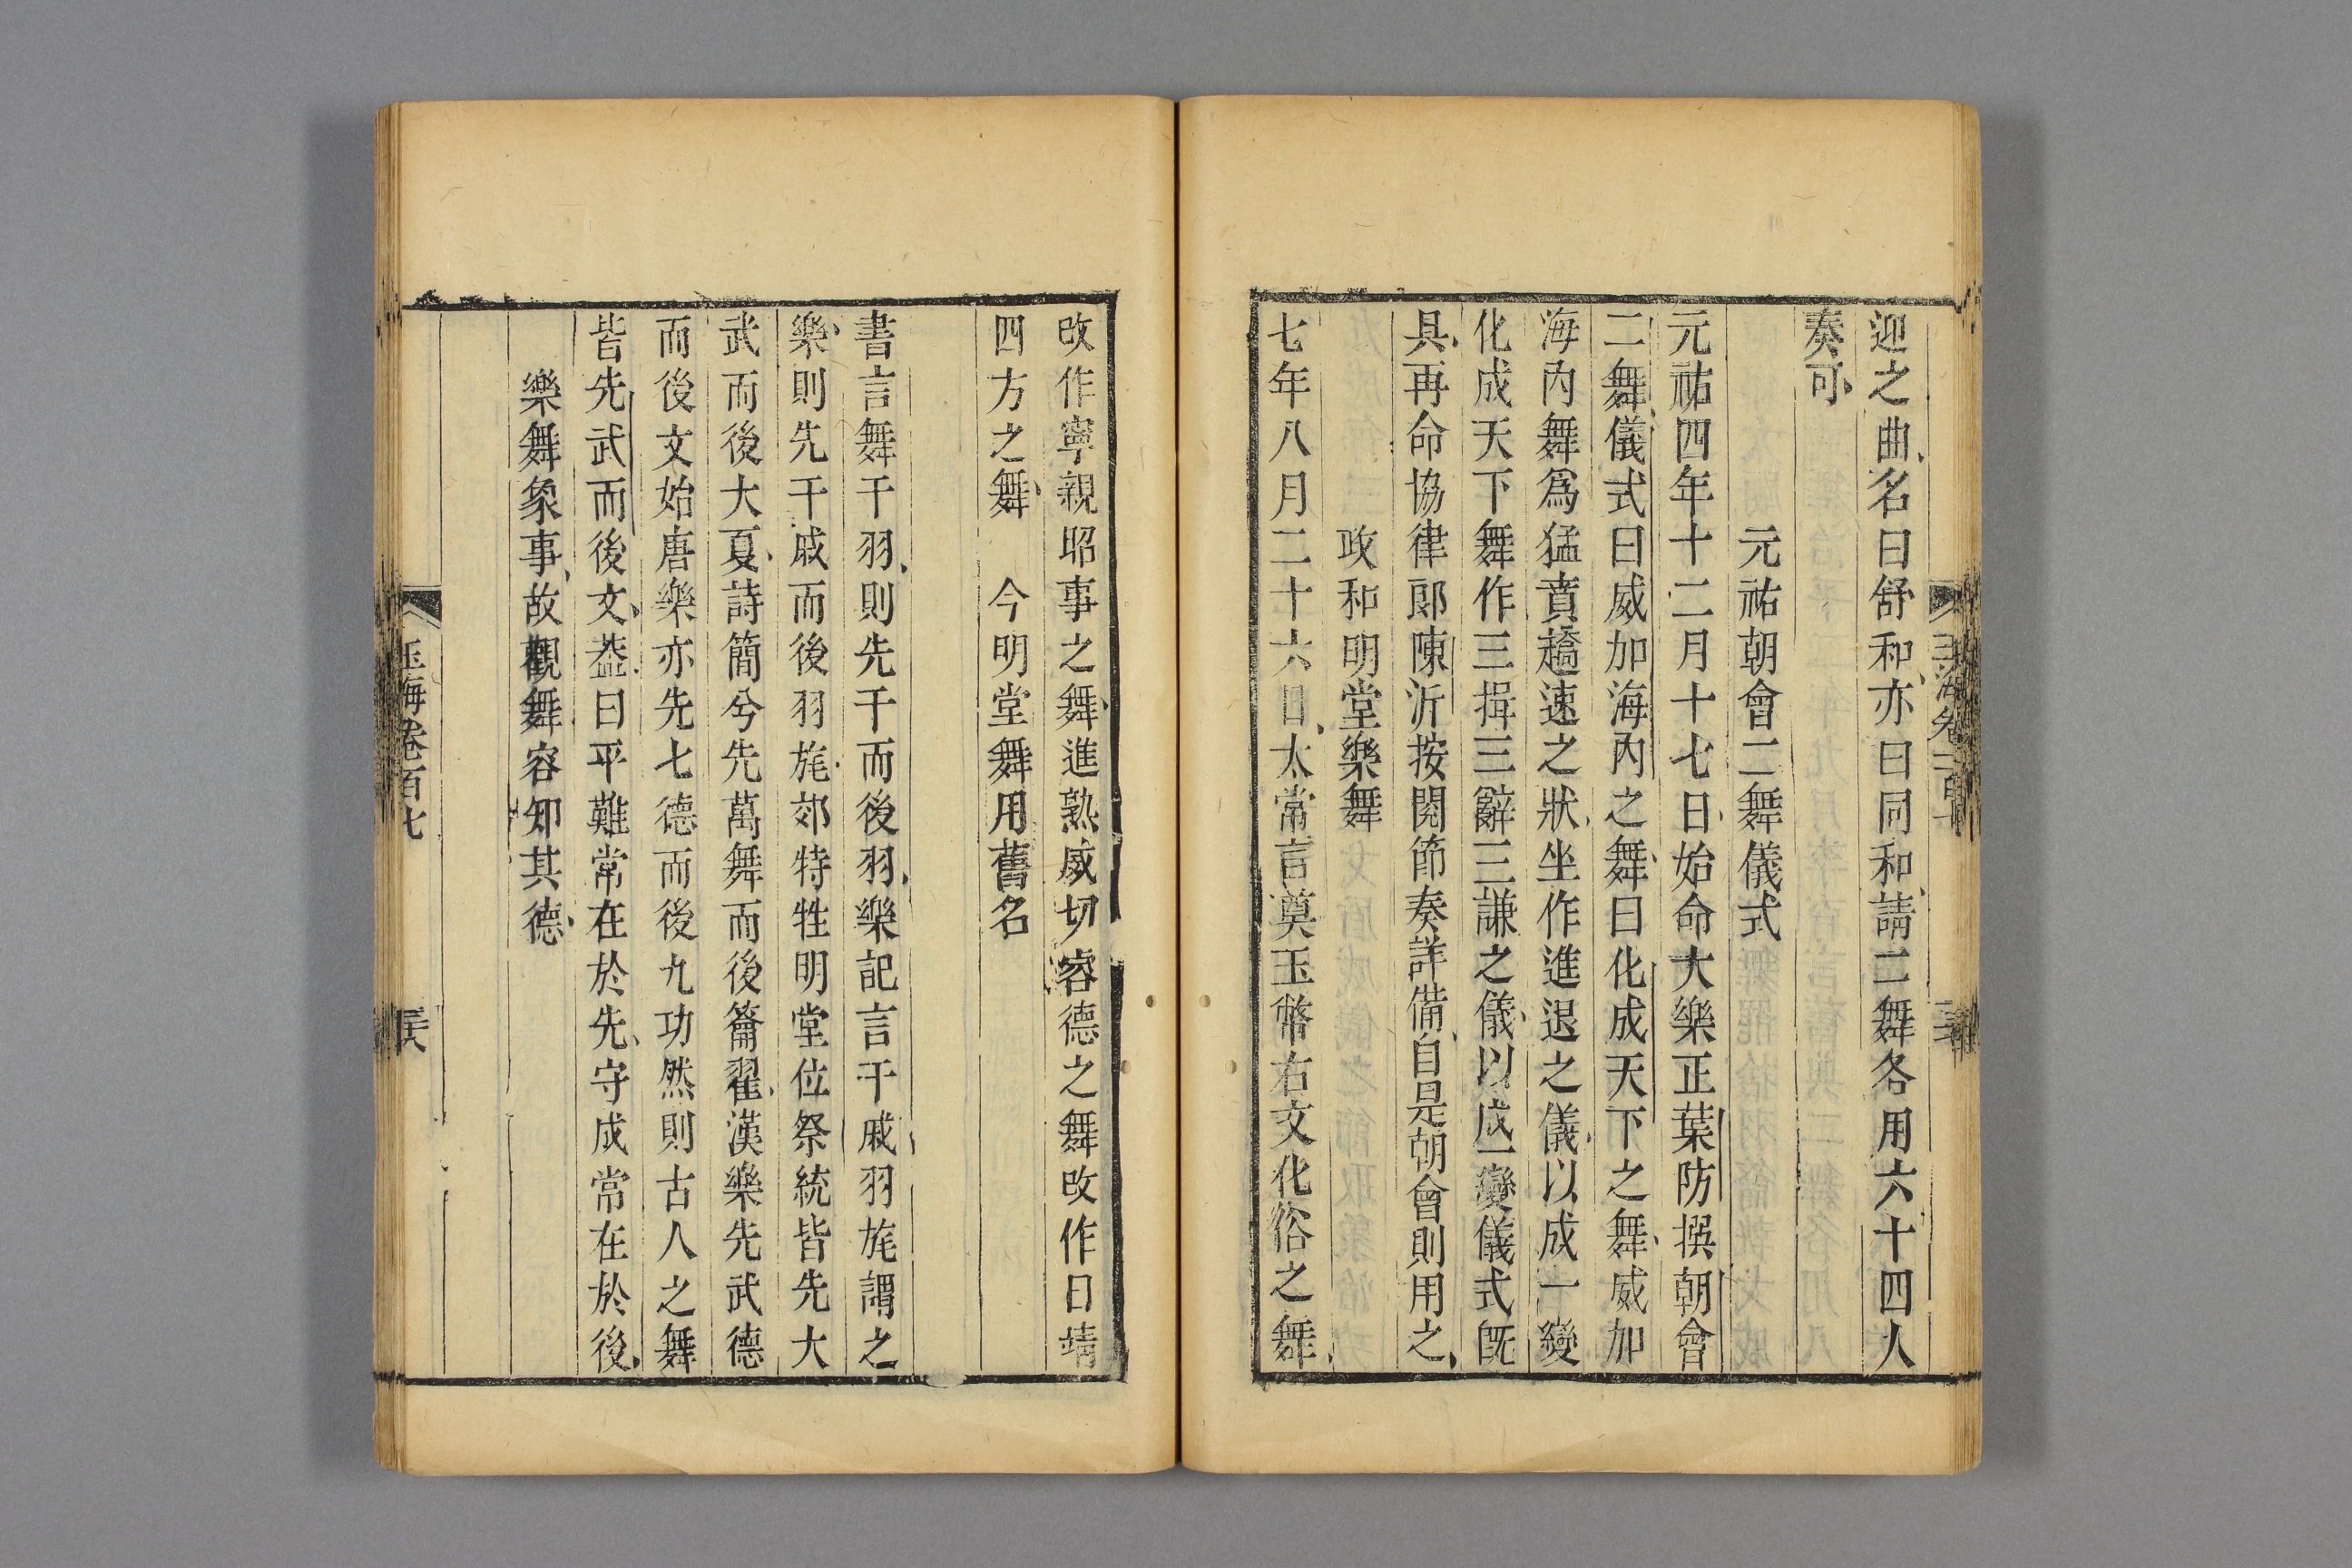 迎之曲名曰舒和亦曰同和請二舞各用六十四人
奏可
元祐朝會二舞儀式
元祐四年十二月十七日始命大樂正葉防撰朝會
二舞儀式曰威加海內之舞曰化成天下之舞威加
海內舞爲猛賁趫速之狀坐作進退之儀以成一變
化成天下舞作三揖三辭三謙之儀以成一變儀式旣
具再命協律郎陳沂按閱節奏詳備自是朝會則用之
政和明堂樂舞
七年八月二十六日太常言奠玉幣右文化俗之舞
改作寧親昭事之舞進熟威功睿德之舞改作日靖
四方之舞 今明堂舞用舊名
書言舞干羽則先干而後羽樂記言干戚羽旄謂之
樂則先干戚而後羽旄郊特牲明堂位祭統皆先大
武而後大夏詩簡兮先萬舞而後籥翟漢樂先武德
而後文始唐樂亦先七德而後九功然則古人之舞
皆先武而後文葢曰平難常在於先守成常在於後
樂舞象事故觀舞容知其德
玉海卷百七